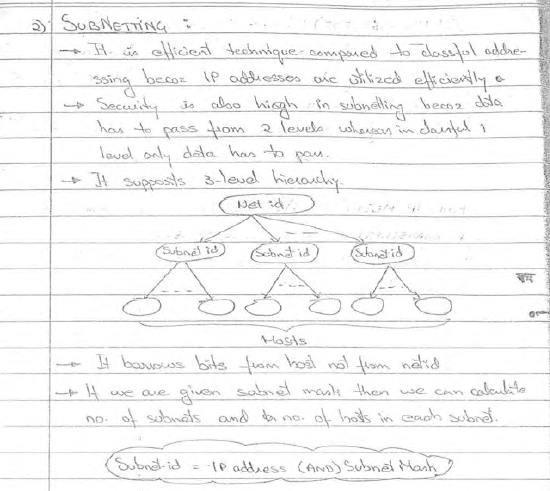 2) SUBNETTING :
→ It is efficient technique compared to classful addre-
ssing becoz IP addresses are utilized efficiently &
→ Security is also hiegh in subnetting becoz data
has to pass from 2 levels whereas in classful 1
level only data has to pass.
→ It supposts 3-level hierarchy.
Net id
Subnet id Subnet id Subnet id
Hosts
→ It borrows bits from host not from netid
→ If we are given subnet mask then we can calculate
no. of subnets and no. of hosts in each subnet.
Subnet-id = IP address (AND) Subnet Mask